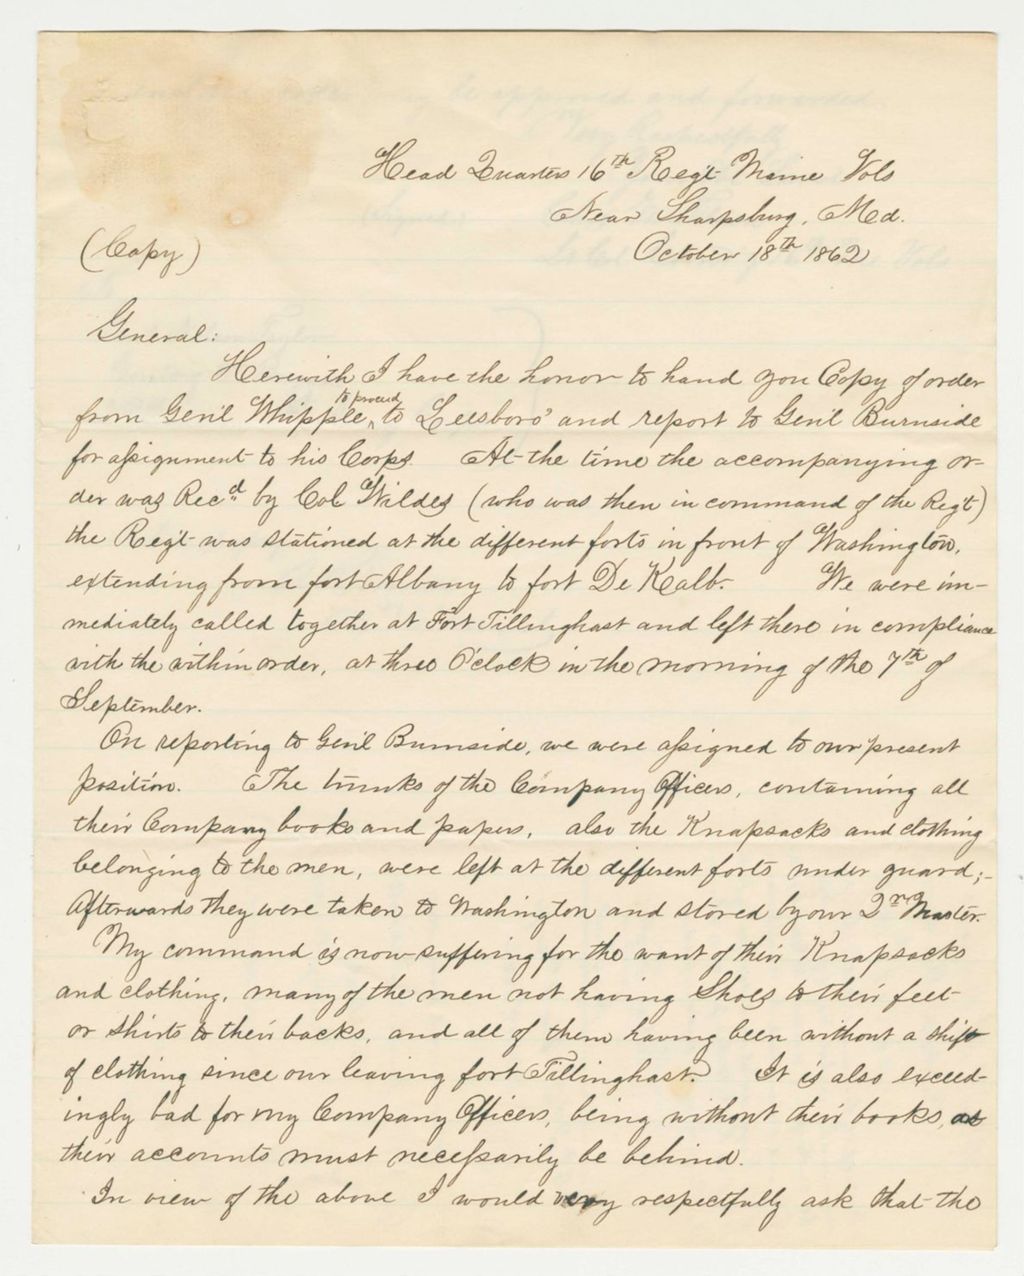 Head Quarters 16th Reg't Maine Vols
Near Sharpsburg, Md.
(Copy)
October 18th 1862
General:
Herewith I have the honor to hand you Copy of order
from Gen'l Whipple, to proceed to Leesboro' and report to Gen'l Burnside
for assignment to his Corps. At the time the accompanying or-
der was Rec'd by Col Wildes (who was then in command of the Reg't)
the Reg't was stationed at the different forts in front of Washington,
extending from fort Albany to fort De Kalb. We were im-
mediately called together at Fort Tillinghast and left there in compliance
with the within order, at three O'clock in the morning of the 7th of
September.
On reporting to Gen'l Burnside, we were assigned to our present
position. The trunks of the Company Officers, containing all
their Company books and papers, also the Knapsacks and clothing
belonging to the men, were left at the different forts under guard;-
Afterwards they were taken to Washington and stored by our Qr Master.
My command is now suffering for the want of their Knapsacks
and clothing, many of the men not having Shoes to their feet
or shirts to their backs, and all of them having been without a shift
of clothing since our leaving fort Tillinghast. It is also exceed-
ingly bad for my Company Officers, being without their books, as
their accounts must necessarily be behind.
In view of the above I would very respectfully ask that the